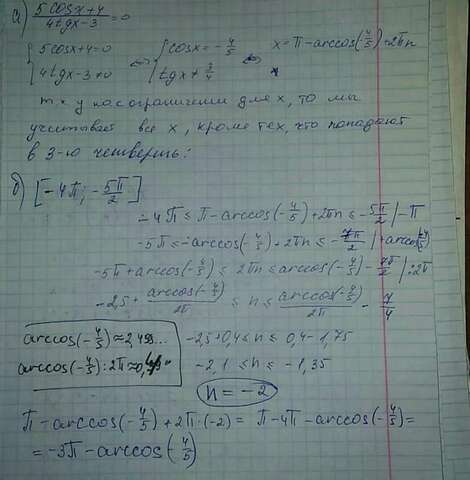 а) (5cosx+4)/(4tgx-3)=0
{5cosx+4=0 ⇔ {cosx=-4/5 ⇔ x=π-arccos(-4/5)+2πn
{4tgx-3≠0 {tgx≠3/4
т.к у нас ограничении для x, то мы
учитывает все x, кроме тех, что попадают
в 3-ю четверть:
б) [-4π; -5π/2]
-4π ≤ π-arccos(-4/5)+2πn ≤ -5π/2 |-π
-5π ≤ -arccos(-4/5)+2πn ≤ -7π/2 |+arccos(-4/5)
-5π+arccos(-4/5) ≤ 2πn ≤ arccos(-4/5)-7π/2 |:2π
-2,5+arccos(-4/5)/2π ≤ n ≤ arccos(-4/5)/2π - 7/4
arccos(-4/5)≈2,498... -2,5+0,4≤n≤0,4-1,75
arccos(-4/5):2π≈0, -2,1≤n≤-1,35
n=-2
π-arccos(-4/5)+2π·(-2)= π-4π-arccos(-4/5)=
=-3π-arccos(-4/5)